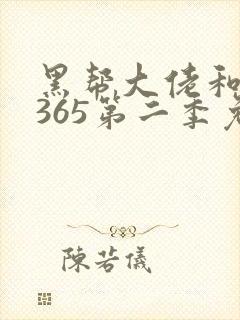 黑帮大佬和
365第二季免
陳若儀